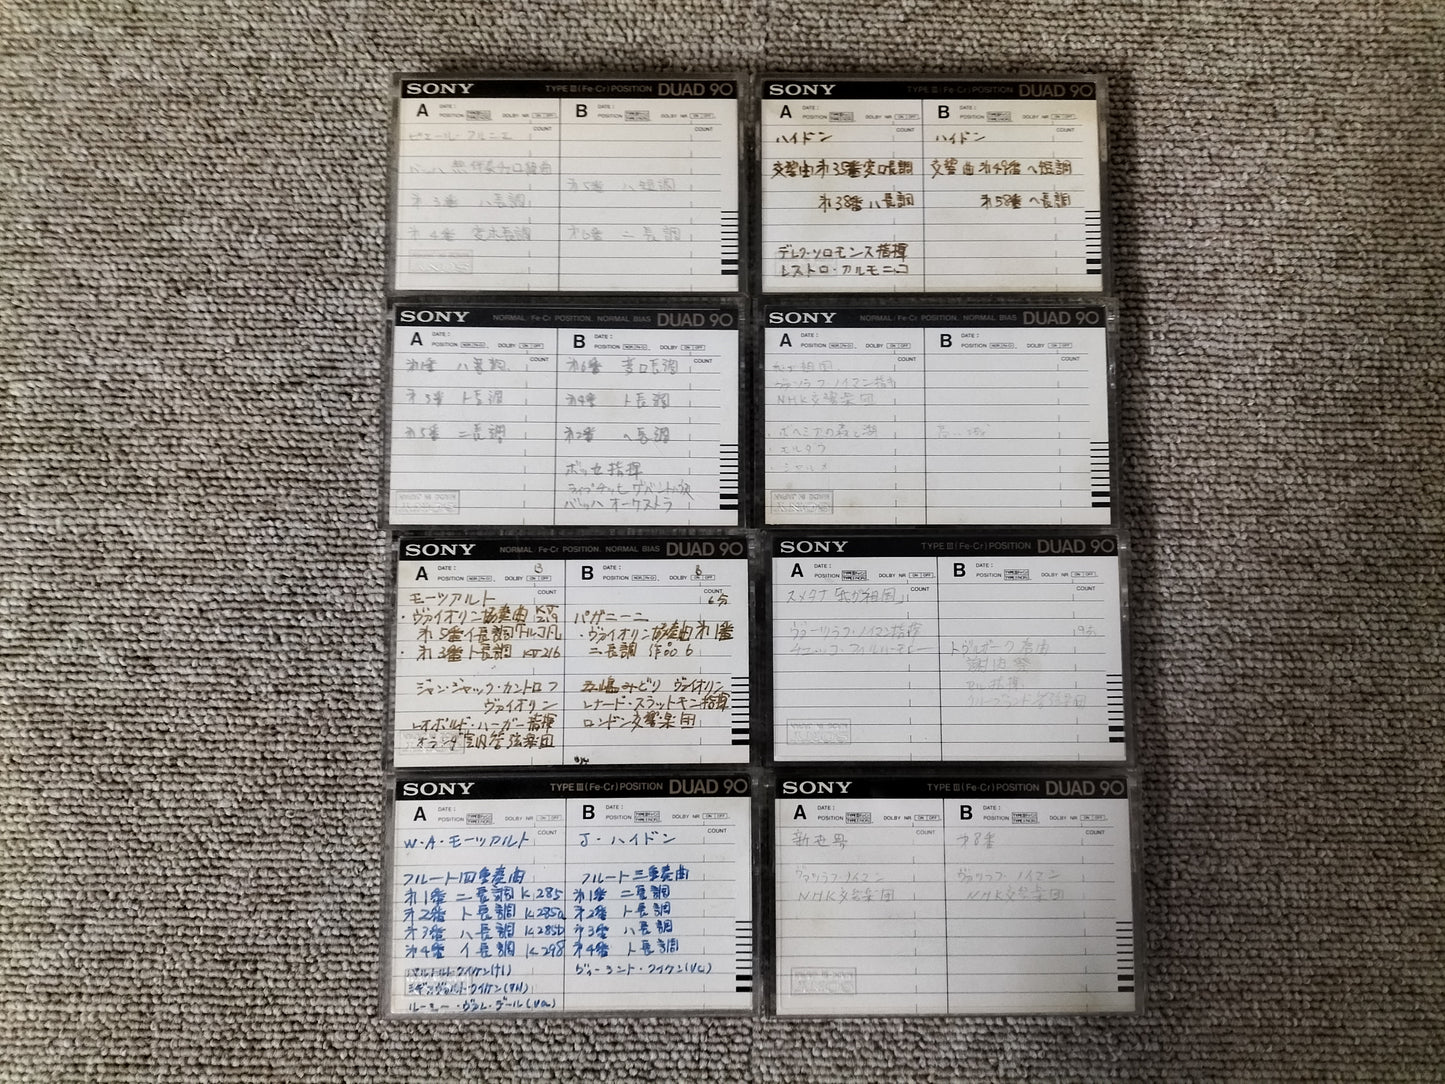 SONY TYPE III (Fe-Cr) POSITION DUAD 90
A DATE :
POSITION DOLBY NR ON OFF
COUNT
ピエール・フルニエ
バッハ 無伴奏チェロ組曲
第3番 ハ長調
第4番 変ホ長調
B
DATE :
POSITION DOLBY NR ON OFF
COUNT
第5番 ハ短調
第6番 ニ長調
SONY TYPE III (Fe-Cr) POSITION DUAD 90
A DATE :
POSITION DOLBY NR ON OFF
COUNT
ハイドン
交響曲第35番変ロ長調
第38番 ハ長調
デレク・ソロモンス指揮
レストロ・アルモニコ
B DATE :
POSITION DOLBY NR ON OFF
COUNT
ハイドン
交響曲第49番 ヘ短調
第58番 ヘ長調
SONY NORMAL / Fe-Cr POSITION, NORMAL BIAS DUAD 90
A DATE :
POSITION NOR/Fe-Cr DOLBY ON OFF
COUNT
第1番 ハ長調
第3番 ト長調
第5番 ニ長調
B DATE :
POSITION NOR/Fe-Cr DOLBY ON OFF
COUNT
第6番 変ロ長調
第4番 ト長調
第2番 ヘ長調
ボッセ指揮
ライプチッヒゲバントハウス
バッハオーケストラ
SONY NORMAL / Fe-Cr POSITION, NORMAL BIAS DUAD 90
A DATE :
POSITION NOR/Fe-Cr DOLBY ON OFF
COUNT
わが祖国
ヴァツラフ・ノイマン指揮
NHK交響楽団
・ボヘミアの森と湖
・モルダウ
・シャルカ
B DATE :
POSITION NOR/Fe-Cr DOLBY ON OFF
COUNT
高い城
SONY NORMAL / Fe-Cr POSITION, NORMAL BIAS DUAD 90
A DATE : B
POSITION NOR/Fe-Cr DOLBY ON OFF
COUNT
モーツアルト
・ヴァイオリン協奏曲 KV219
第5番イ長調「トルコ風
・第3番ト長調 KV216
ジャン・ジャック・カントロフ
ヴァイオリン
レオポルド・ハーガー指揮
オランダ室内管弦楽団
B DATE : B
POSITION NOR/Fe-Cr DOLBY ON OFF
COUNT
6分
パガニーニ
・ヴァイオリン協奏曲第1番
ニ長調 作品6
五嶋みどり ヴァイオリン
レナード・スラットキン指揮
ロンドン交響楽団
SONY TYPE III (Fe-Cr) POSITION DUAD 90
A DATE :
POSITION DOLBY NR ON OFF
COUNT
スメタナ「我が祖国」
ヴァーツラフ・ノイマン指揮
チェッコ・フィルハーモニー
B DATE :
POSITION DOLBY NR ON OFF
COUNT
19分
ドヴォルザーク序曲
謝肉祭
セル指揮
クリーブランド管弦楽団
SONY TYPE III (Fe-Cr) POSITION DUAD 90
A DATE :
POSITION DOLBY NR ON OFF
COUNT
W・A・モーツァルト
フルート四重奏曲
第1番 ニ長調 K.285
第2番 ト長調 K.285a
第3番 ハ長調 K.285b
第4番 イ長調 K.298
バルトルト・クイケン(fl)
シギスヴァルト・クイケン(Vn)
ルーシー・ヴァン・デール(Va)
B DATE :
POSITION DOLBY NR ON OFF
COUNT
J・ハイドン
フルート三重奏曲
第1番 ニ長調
第2番 ト長調
第3番 ハ長調
第4番 ト長調
ヴィーラント・クイケン(Vc)
SONY TYPE III (Fe-Cr) POSITION DUAD 90
A DATE :
POSITION DOLBY NR ON OFF
COUNT
新世界
ヴァツラフ・ノイマン
NHK交響楽団
B DATE :
POSITION DOLBY NR ON OFF
COUNT
第8番
ヴァツラフ・ノイマン
NHK交響楽団